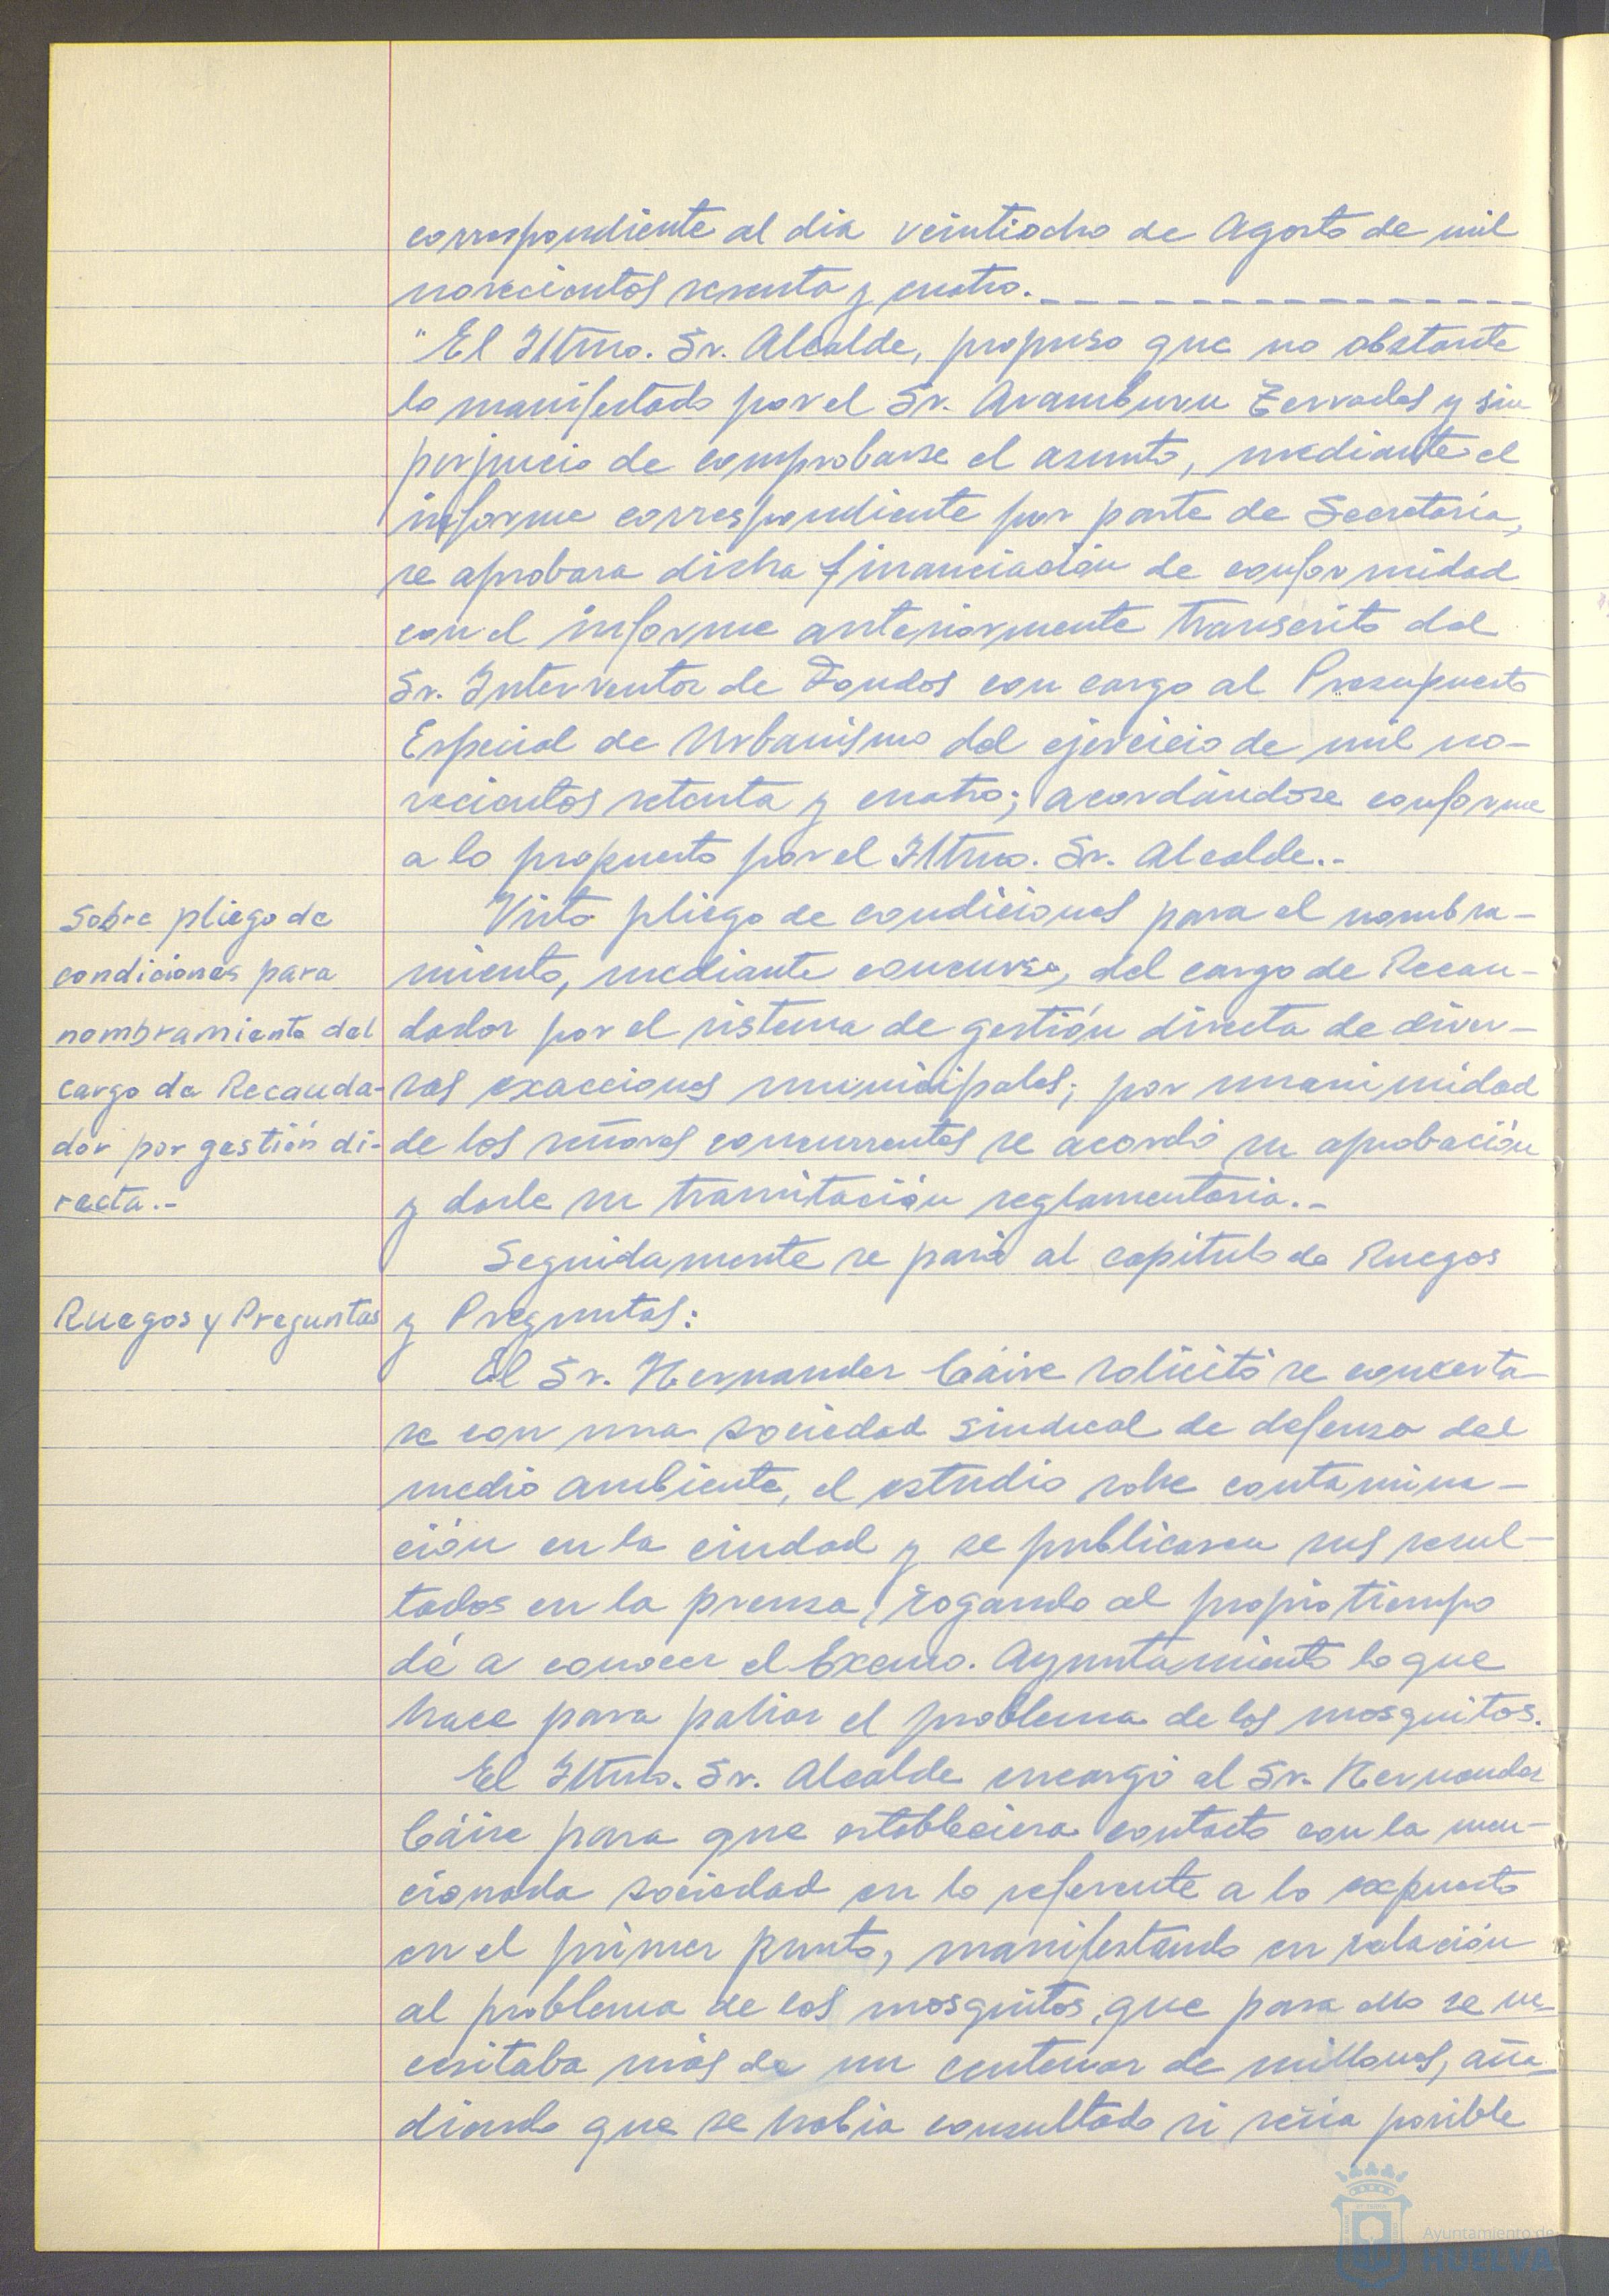 correspondiente al dia veintiocho de Agosto de mil
novecientos setenta y cuatro.
"El Iltmo. Sr. Alcalde, propuso que no obstante
lo manifestado por el Sr. Aramburu Terrades y sin
perjuicio de comprobarse el asunto, mediante el
informe correspondiente por parte de Secretaría,
se aprobara dicha financiación de conformidad
con el informe anteriormente transcrito del
Sr. Interventor de Fondos con cargo al Presupuesto
Especial de Urbanismo del ejercicio de mil no-
vecientos setenta y cuatro; acordándose conforme
a lo propuesto por el Iltmo. Sr. Alcalde.-
Sobre pliego de
condiciones para
nombramiento del
cargo de Recauda-
dor por gestión di-
recta.-
Visto pliego de condiciones para el nombra-
miento, mediante concurso, del cargo de Recau-
dador por el sistema de gestión directa de diver-
sas exacciones municipales; por unanimidad
de los señores concurrentes se acordó su aprobación
y darle su tramitación reglamentaria.-
Seguidamente se pasó al capitulo de Ruegos
Ruegos y Preguntas
y Preguntas:
El Sr. Hernandez Cáire solicitó se concerta-
se con una sociedad sindical de defensa del
medio ambiente, el estudio sobre contamina-
ción en la ciudad y se publicasen sus resul-
tados en la prensa, rogando al propio tiempo
dé a conocer el Excmo. Ayuntamiento lo que
hace para paliar el problema de los mosquitos.
El Iltmo. Sr. Alcalde encargó al Sr. Hernandez
Cáire para que estableciera contacto con la men-
cionada sociedad en lo referente a lo expuesto
en el primer punto, manifestando en relación
al problema de los mosquitos, que para ello se ne-
cesitaba más de un centenar de millones, aña-
diendo que se habia consultado si sería posible
Ayuntamiento de
HUELVA